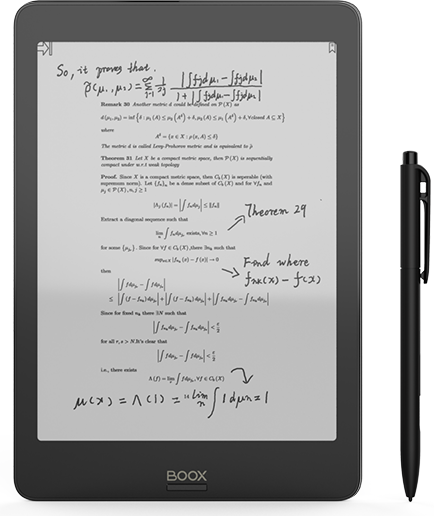 So, it proves that.
ρ̃(μ₁, μ₂) = Σ_{j=1}^{∞} 1/2^j |∫fjdμ₁ − ∫fjdμ₂| / 1+|∫fjdμ₁ − ∫fjdμ₂|
Remark 30 Another metric d could be defined on P(X) as
d(μ₁, μ₂) = inf{δ : μ₁(A) ≤ μ₂(A^δ) + δ, μ₂(A) ≤ μ₁(A^δ) + δ, ∀closed A ⊆ X}
where
A^δ = {x ∈ X : ρ(x, A) ≤ δ}
The metric d is called Levy-Prohorov metric and is equivalent to ρ̃
Theorem 31 Let X be a compact metric space, then P(X) is sequentially
compact under w.r.t weak topology
Proof. Since X is a compact metric space, then C_b(X) is seperable (with
supremum norm). Let {f_n}_n be a dense subset of C_b(X) and for ∀f_n, and
μ_j ∈ P(X), n, j ≥ 1
|Λ_j(f_n)| = |∫ f_n dμ_j| ≤ ‖f_n‖
Theorem 29
Extract a diagonal sequence such that
lim ∫ f_n dμ_j, exists, ∀n ≥ 1
for some {μ_j}. Since for ∀f ∈ C_b(X), there ∃n_k such that
sup_{x∈X} |f_{n_k}(x) − f(x)| → 0
Find where
f_{nk}(x) − f(x)
then
|∫ f dμ_j − ∫ f dμ_j|
≤ |∫(f − f_{n_k})dμ_j| + |∫(f − f_{n_k})dμ_j| + |∫ f_{n_k}dμ_j − ∫ f_{n_k}dμ_j|
Since for fixed n_k there ∃N such that
for all r, s > N. It's clear that
i.e., there exists
Λ(f) = lim ∫ f dμ_j, ∀f ∈ C_b(X)
μ(x) = Λ(1) = lim_n ∫ 1 dμn = 1
BOOX